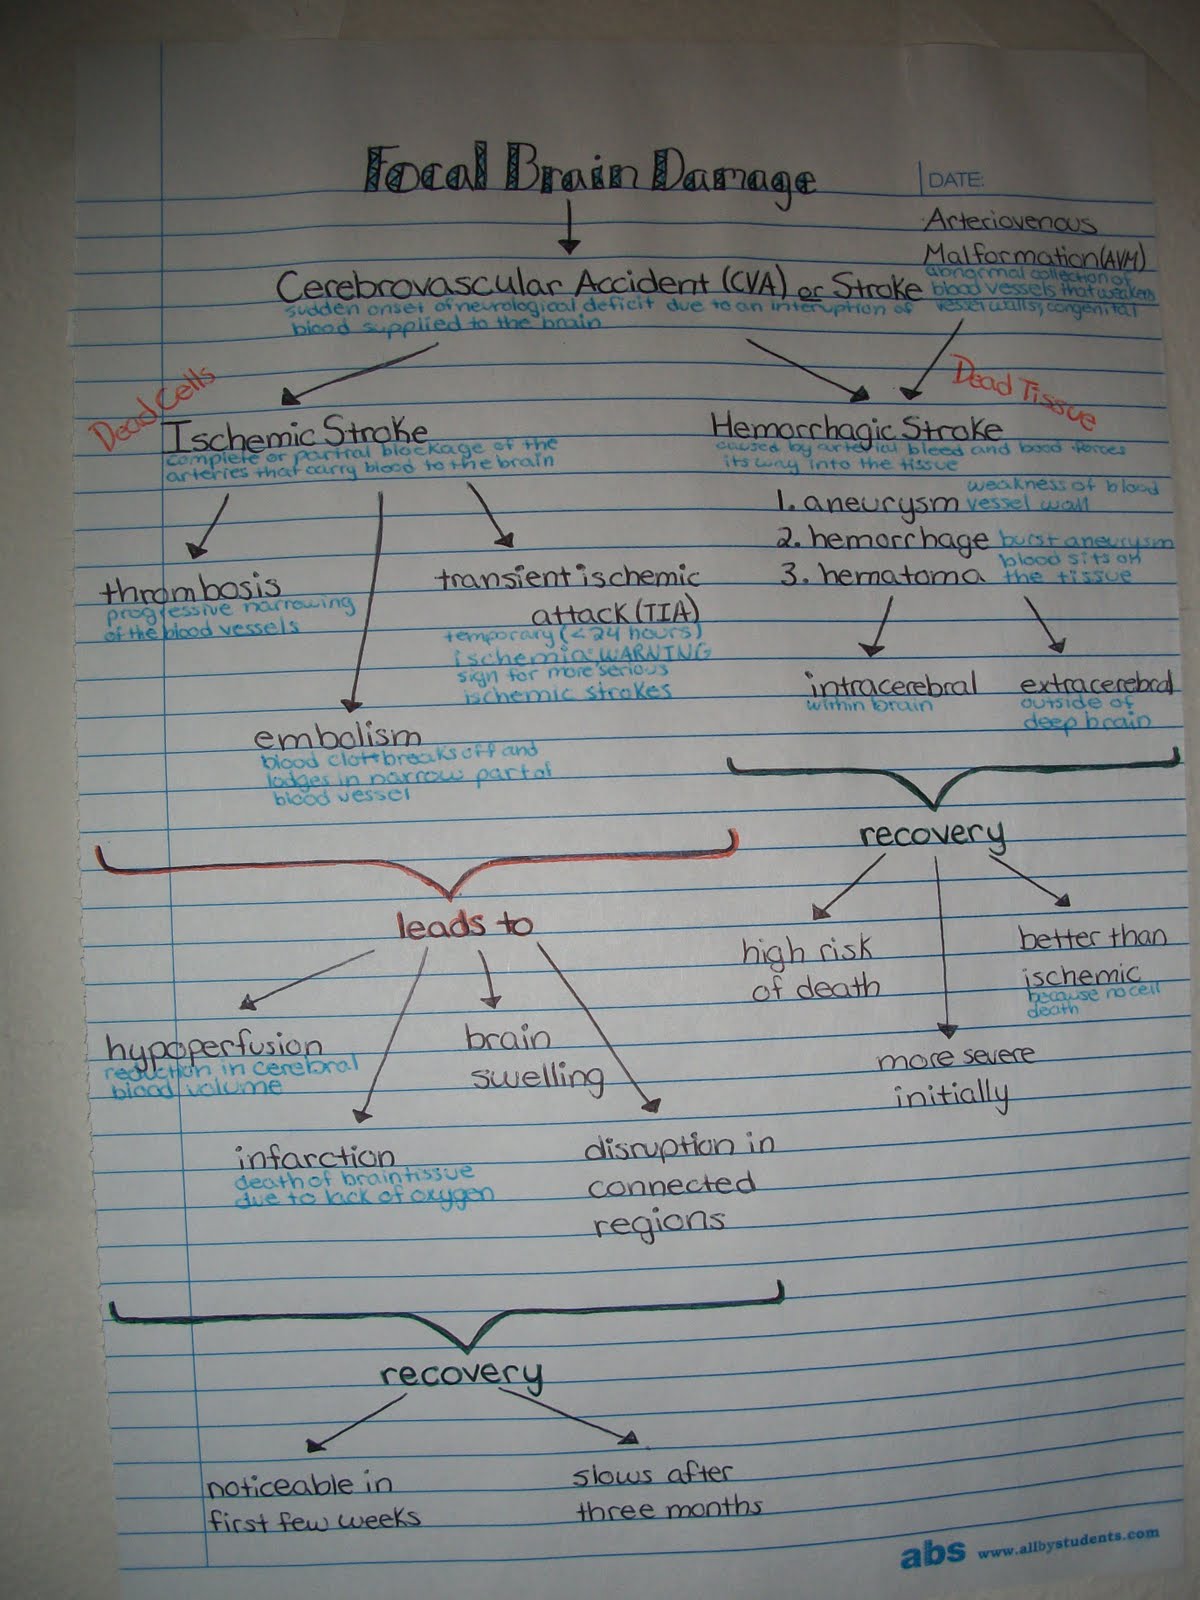 Focal Brain Damage
DATE:
Arteriovenous
Malformation(AVM)
abnormal collection of
blood vessels that weakens
vessel walls, congenital
Cerebrovascular Accident (CVA) or Stroke
sudden onset of neurological deficit due to an interuption of
blood supplied to the brain
Dead Cells
Ischemic Stroke
complete or partial blockage of the
arteries that carry blood to the brain
Dead Tissue
Hemorrhagic Stroke
caused by arterial bleed and blood forces
its way into the tissue
1. aneurysm weakness of blood
vessel wall
2. hemorrhage burst aneurysm
3. hematoma blood sits on
the tissue
thrombosis
progressive narrowing
of the blood vessels
transient ischemic
attack (TIA)
temporary (<24 hours)
ischemia: WARNING
sign for more serious
ischemic strokes
embolism
blood clot breaks off and
lodges in narrow part of
blood vessel
intracerebral
within brain
extracerebral
outside of
deep brain
recovery
high risk
of death
better than
ischemic
because no cell
death
more severe
initially
leads to
hypoperfusion
reduction in cerebral
blood volume
brain
swelling
infarction
death of brain tissue
due to lack of oxygen
disruption in
connected
regions
recovery
noticeable in
first few weeks
slows after
three months
abs www.allbystudents.com